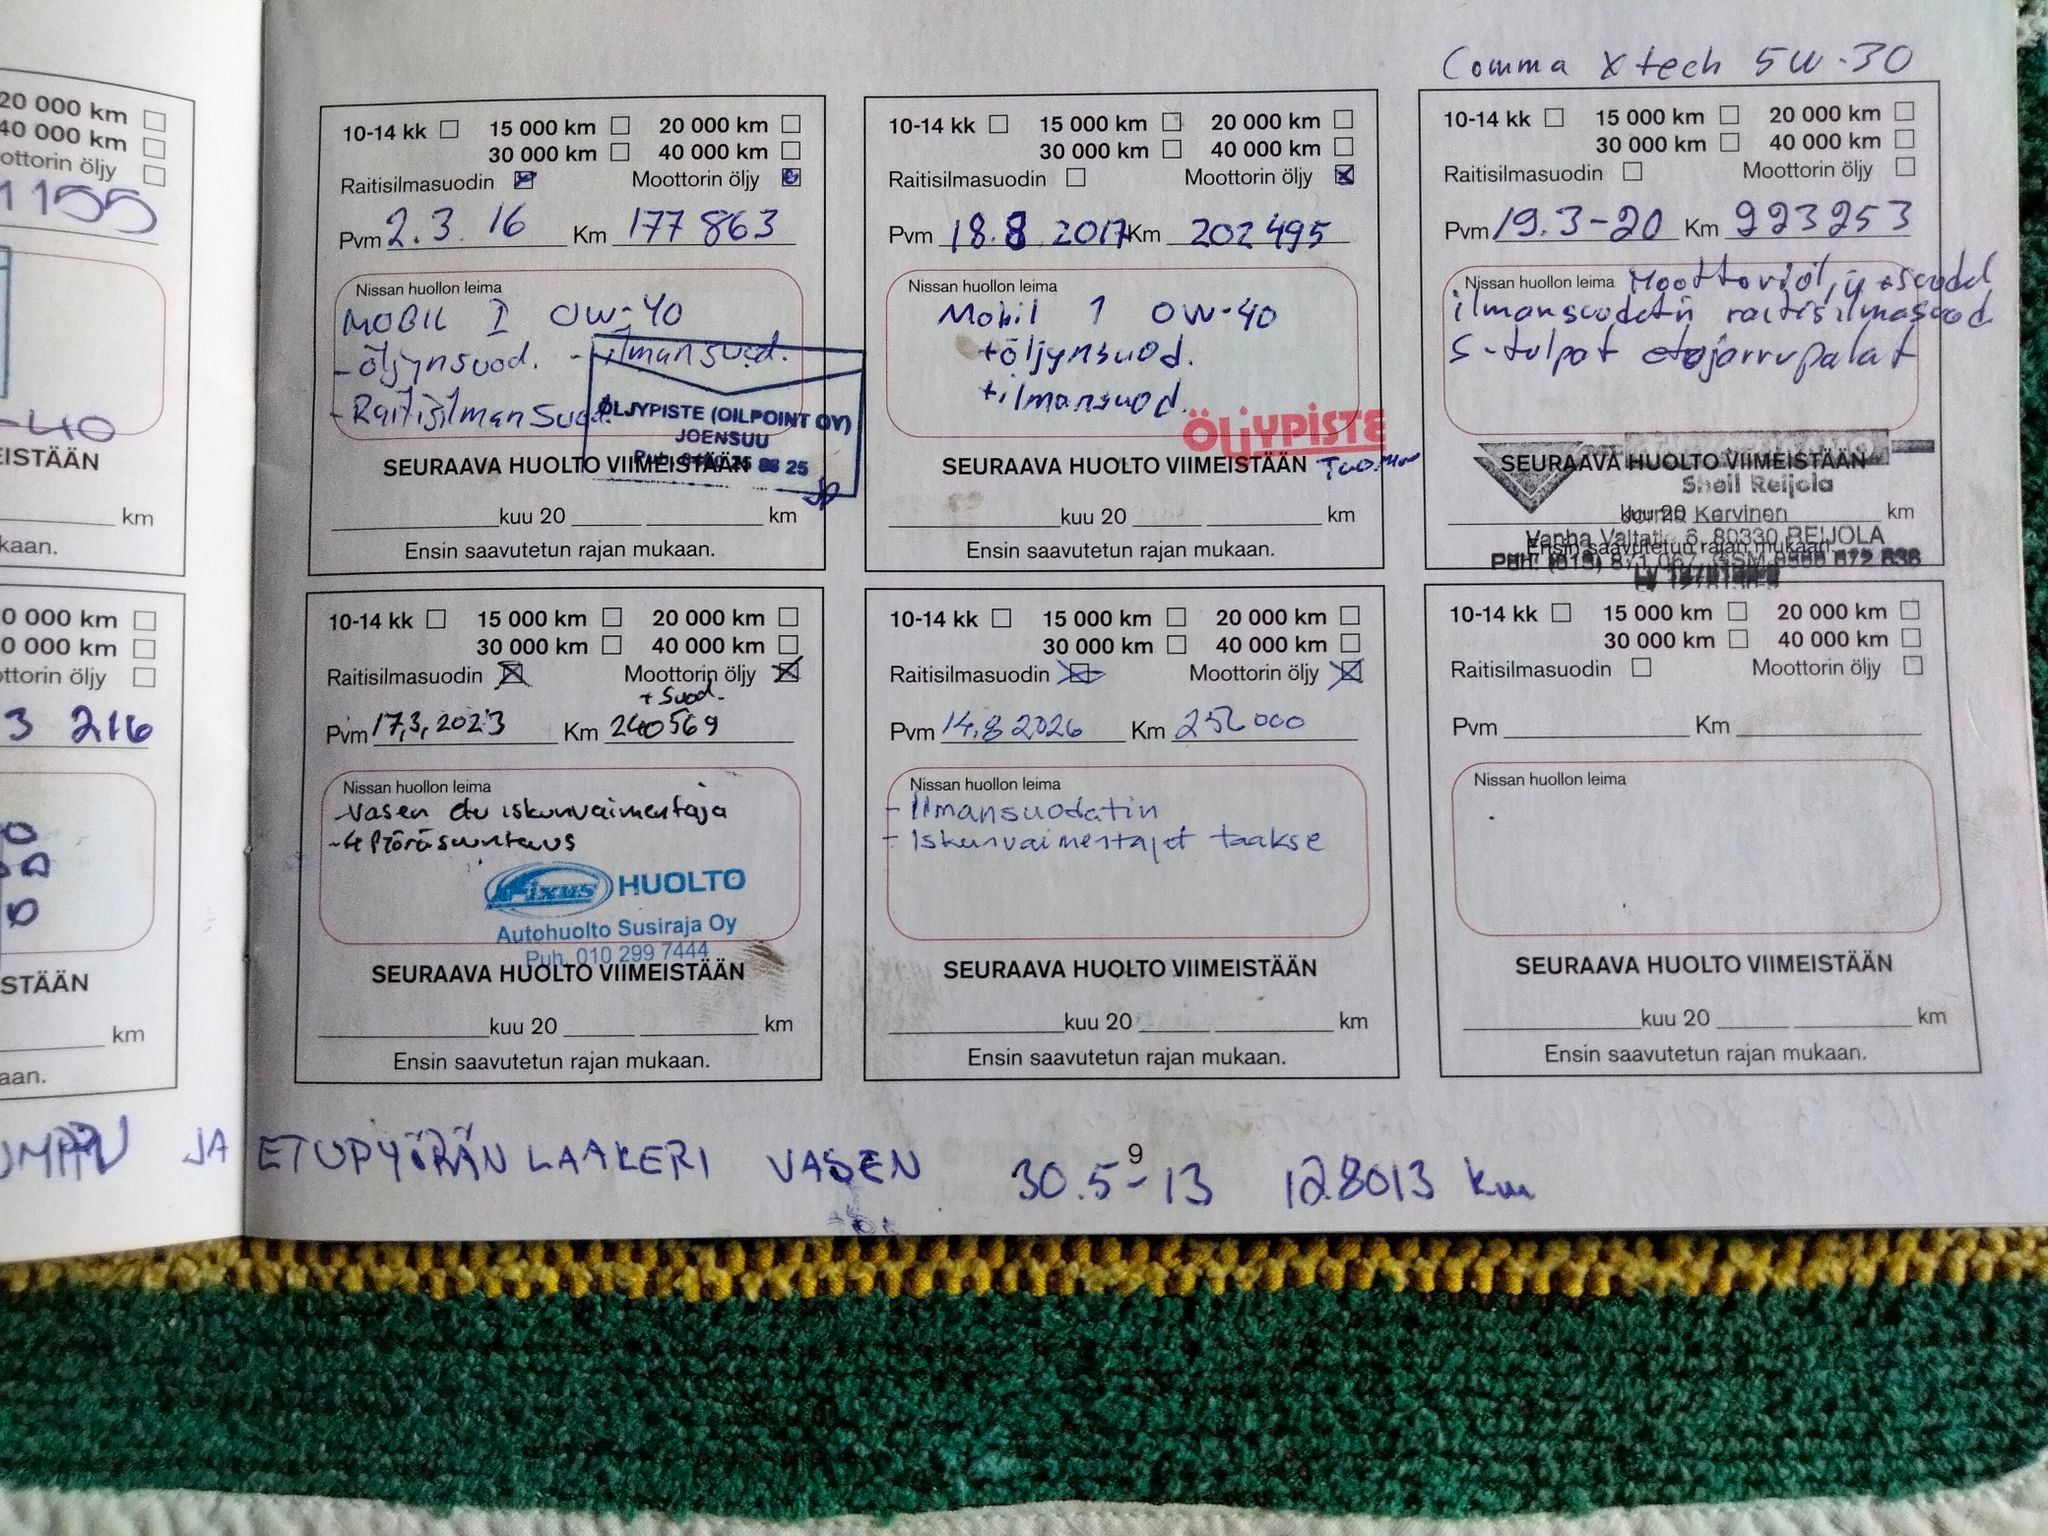 20 000 km
40 000 km
ottorin öljy
1155
-40
EISTÄÄN
km
kaan.
0 000 km
0 000 km
ottorin öljy
3 216
STÄÄN
km
aan.
Comma Xtech 5W-30
10-14 kk 15 000 km 20 000 km
30 000 km 40 000 km
Raitisilmasuodin Moottorin öljy
Pvm 2.3.16 Km 177 863
Nissan huollon leima
MOBIL 1 0W-40
- öljynsuod. - ilmansuod.
- Raitisilmansuod.
ÖLJYPISTE (OILPOINT OY)
JOENSUU
SEURAAVA HUOLTO VIIMEISTÄÄN
kuu 20 km
Ensin saavutetun rajan mukaan.
10-14 kk 15 000 km 20 000 km
30 000 km 40 000 km
Raitisilmasuodin Moottorin öljy
Pvm 18.8.2017 Km 202 495
Nissan huollon leima
Mobil 1 0W-40
+öljynsuod.
+ilmansuod.
ÖLJYPISTE
SEURAAVA HUOLTO VIIMEISTÄÄN
kuu 20 km
Ensin saavutetun rajan mukaan.
10-14 kk 15 000 km 20 000 km
30 000 km 40 000 km
Raitisilmasuodin Moottorin öljy
Pvm 19.3-20 Km 223253
Nissan huollon leima
ilmansuodatin raitisilmasuod
S-tulpat etujarrupalat
SEURAAVA HUOLTO VIIMEISTÄÄN
Shell Reijola
Jorma Karvinen
kuu 20 km
Vanha Valtatie 6, 80330 REIJOLA
Ensin saavutetun rajan mukaan.
Puh. (013) 871 067, GSM
10-14 kk 15 000 km 20 000 km
30 000 km 40 000 km
Raitisilmasuodin Moottorin öljy
+ Suod.
Pvm 17,3,2023 Km 240569
Nissan huollon leima
-Vasen etu iskunvaimentaja
-4 Pyöräsuuntaus
Fixus HUOLTO
Autohuolto Susiraja Oy
Puh. 010 299 7444
SEURAAVA HUOLTO VIIMEISTÄÄN
kuu 20 km
Ensin saavutetun rajan mukaan.
10-14 kk 15 000 km 20 000 km
30 000 km 40 000 km
Raitisilmasuodin Moottorin öljy
Pvm 14.8 2026 Km 252000
Nissan huollon leima
- Ilmansuodatin
- Iskunvaimentajat taakse
SEURAAVA HUOLTO VIIMEISTÄÄN
kuu 20 km
Ensin saavutetun rajan mukaan.
10-14 kk 15 000 km 20 000 km
30 000 km 40 000 km
Raitisilmasuodin Moottorin öljy
Pvm Km
Nissan huollon leima
SEURAAVA HUOLTO VIIMEISTÄÄN
kuu 20 km
Ensin saavutetun rajan mukaan.
JA ETUPYÖRÄN LAAKERI VASEN 30.5-13 128013 km
9